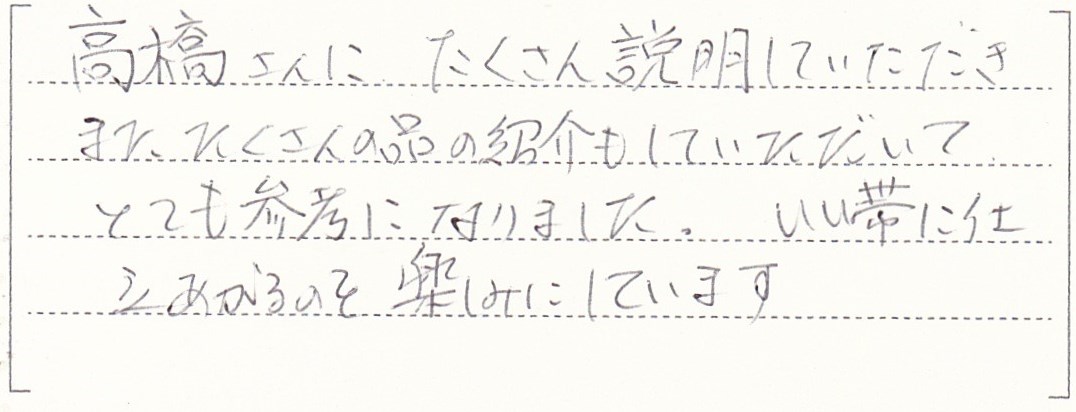 高橋さんに たくさん説明していただき
また たくさんの品の紹介もしていただいて
とても参考になりました。 いい帯に仕
立あがるのを 楽しみにしています